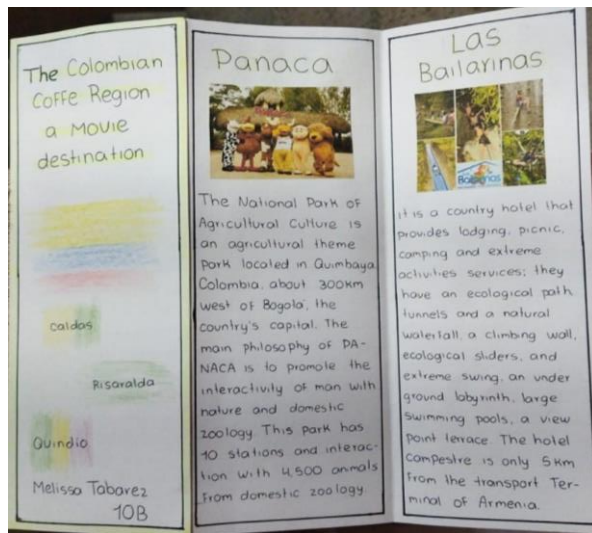 The Colombian
Coffe Region
a Movie
destination
Caldas
Risaralda
Quindio
Melissa Tabarez
10B
Panaca
The National Park of
Agricultural Culture is
an agricultural theme
park located in Quimbaya
Colombia, about 300km
west of Bogolá, the
country's capital. The
main philosophy of PA-
NACA is to promote the
interactivity of man with
nature and domestic
zoology. This park has
10 stations and interac-
tion with 4,500 animals
from domestic zoology.
Las
Bailarinas
Bailarinas
it is a country hotel that
provides lodging, picnic,
camping and extreme
activities services; they
have an ecological path
tunnels and a natural
waterfall, a climbing wall,
ecological sliders, and
extreme swing, an under
ground labyrinth, large
swimming pools, a view
point terrace. The hotel
campestre is only 5km
from the transport Ter-
minal of Armenia.